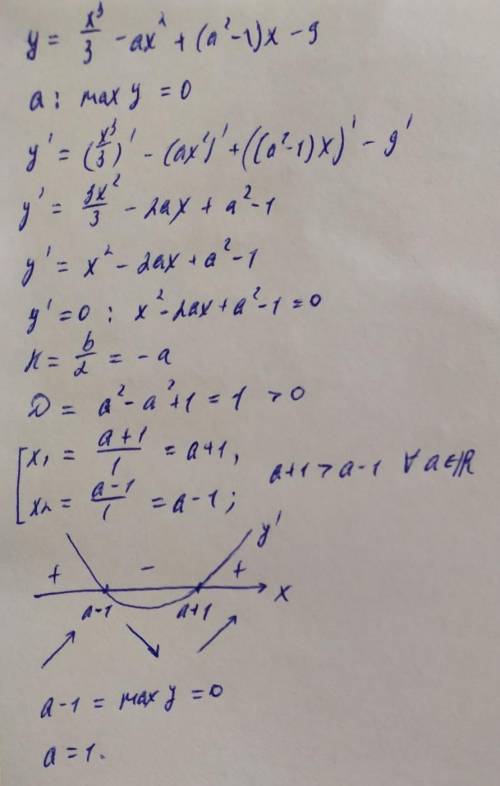 y = x³/3 - ax² + (a²-1)x - 9
a : max y = 0
y' = (x³/3)' - (ax²)' + ((a²-1)x)' - 9'
y' = 3x²/3 - 2ax + a²-1
y' = x² - 2ax + a²-1
y' = 0 : x² - 2ax + a²-1 = 0
K = b/2 = -a
D = a² - a² + 1 = 1 > 0
[ x₁ = (a+1)/1 = a+1,
x₂ = (a-1)/1 = a-1 ; a+1 > a-1 ∀ a∈ℝ
y'
+ - +
a-1 a+1 x
a-1 = max y = 0
a = 1.